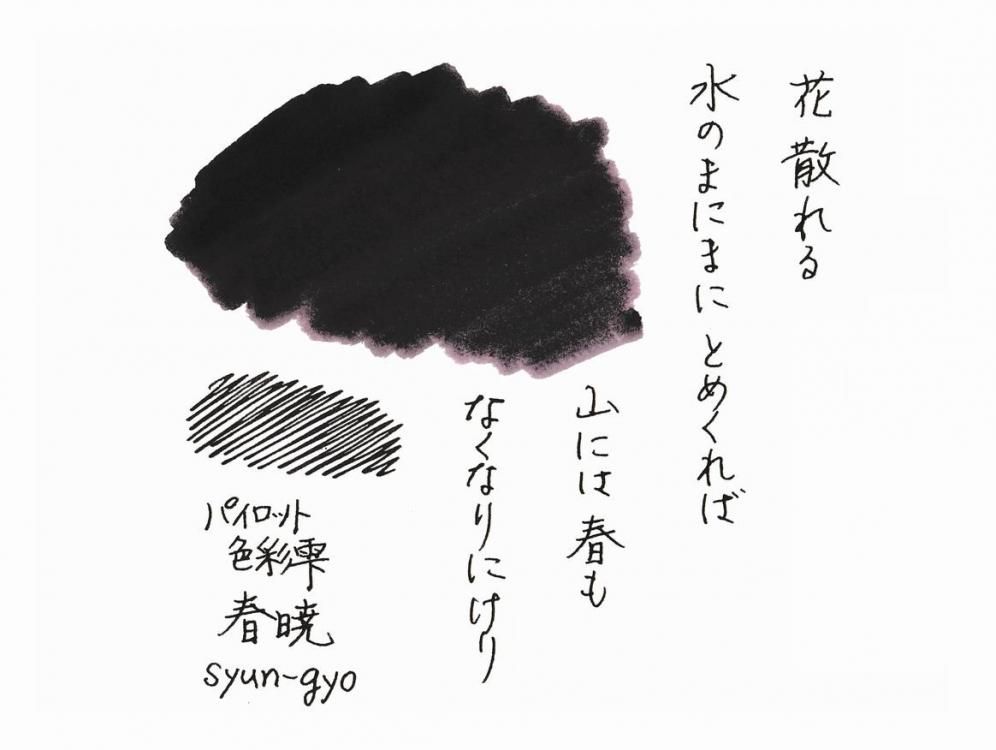 花散れる
水のまにまにとめくれば
山には春も
なくなりにけり
パイロット
色彩雫
春暁
syun-gyo